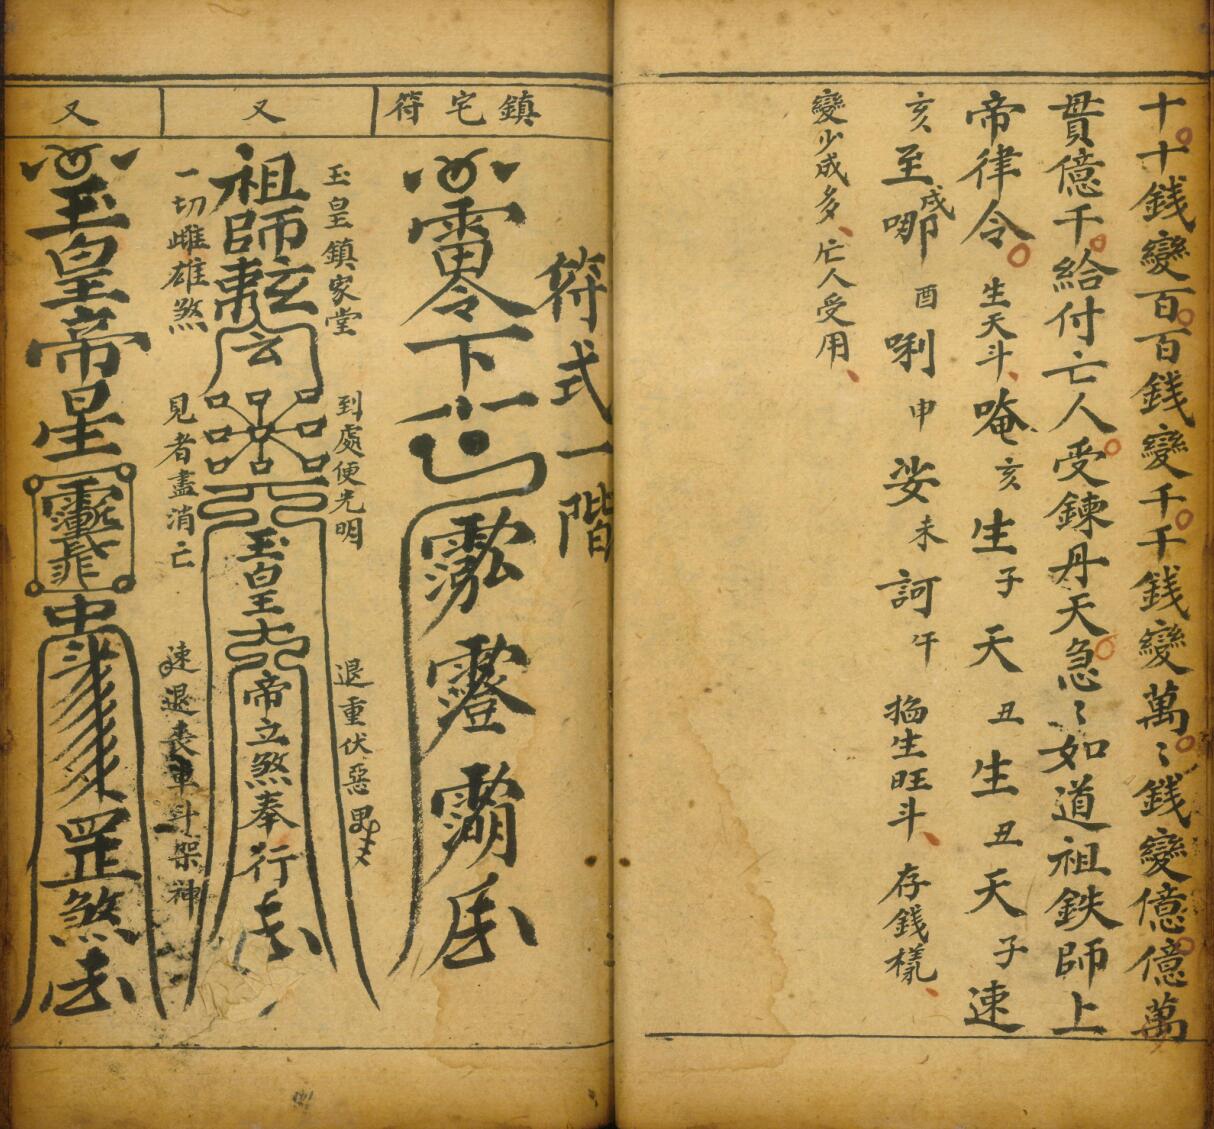 十十錢變百百錢變千千錢變萬〻錢變億億萬
貫億千給付亡人受鍊丹天急〻如道祖鉄師上
帝律令 生天斗 唵 亥 生 子 天 丑 生 丑 天 子 速
亥 至 戌 哪 酉 唎 申 娑 未 訶 午 生旺斗 存錢樣
變少成多亡人受用
符式一階
鎮宅符
雷令下
又
玉皇鎮家堂 到處使光明 退重伏惡
祖師
玄
玉皇
帝立煞奉行
一切雌雄煞 見者盡消亡 速退喪車斗架神
又
玉皇帝星
罡煞